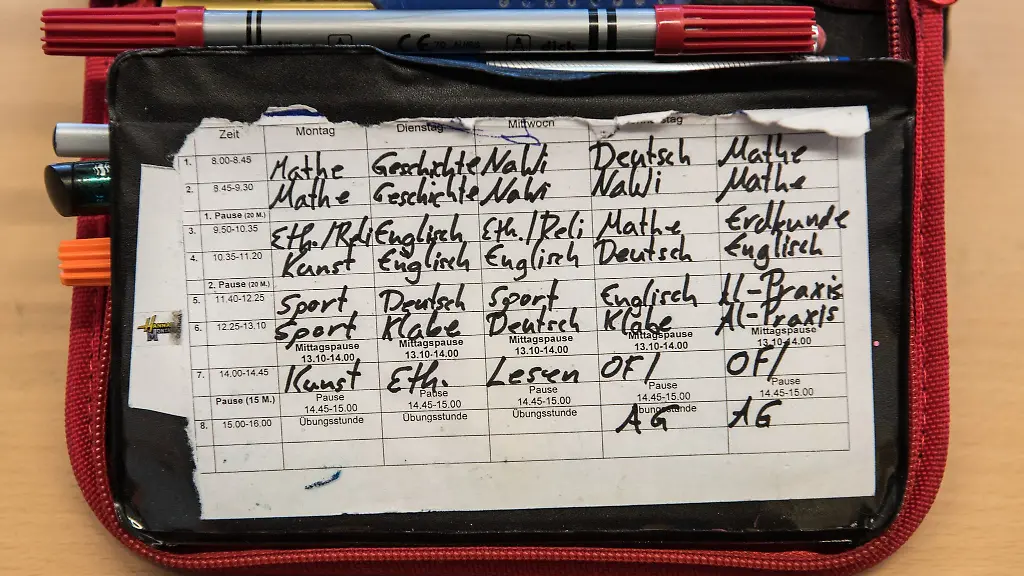 CE
Zeit Montag Dienstag Mittwoch stag
1. 8.00-8.45 Mathe Geschichte NaWi Deutsch Mathe
2. 8.45-9.30 Mathe Geschichte NaWi NaWi Mathe
1. Pause (20 M.)
3. 9.50-10.35 Eth./Reli Englisch Eth./Reli Mathe Erdkunde
4. 10.35-11.20 Kunst Englisch Englisch Deutsch Englisch
2. Pause (20 M.)
5. 11.40-12.25 Sport Deutsch Sport Englisch Al-Praxis
6. 12.25-13.10 Sport Klabe Deutsch Klabe Al-Praxis
Mittagspause Mittagspause Mittagspause Mittagspause Mittagspause
13.10-14.00 13.10-14.00 13.10-14.00 13.10-14.00 13.10-14.00
7. 14.00-14.45 Kunst Eth. Lesen OFI OFI
Pause (15 M.) Pause Pause Pause Pause Pause
14.45-15.00 14.45-15.00 14.45-15.00 14.45-15.00 14.45-15.00
8. 15.00-16.00 Übungsstunde Übungsstunde Übungsstunde Übungsstunde
AG AG